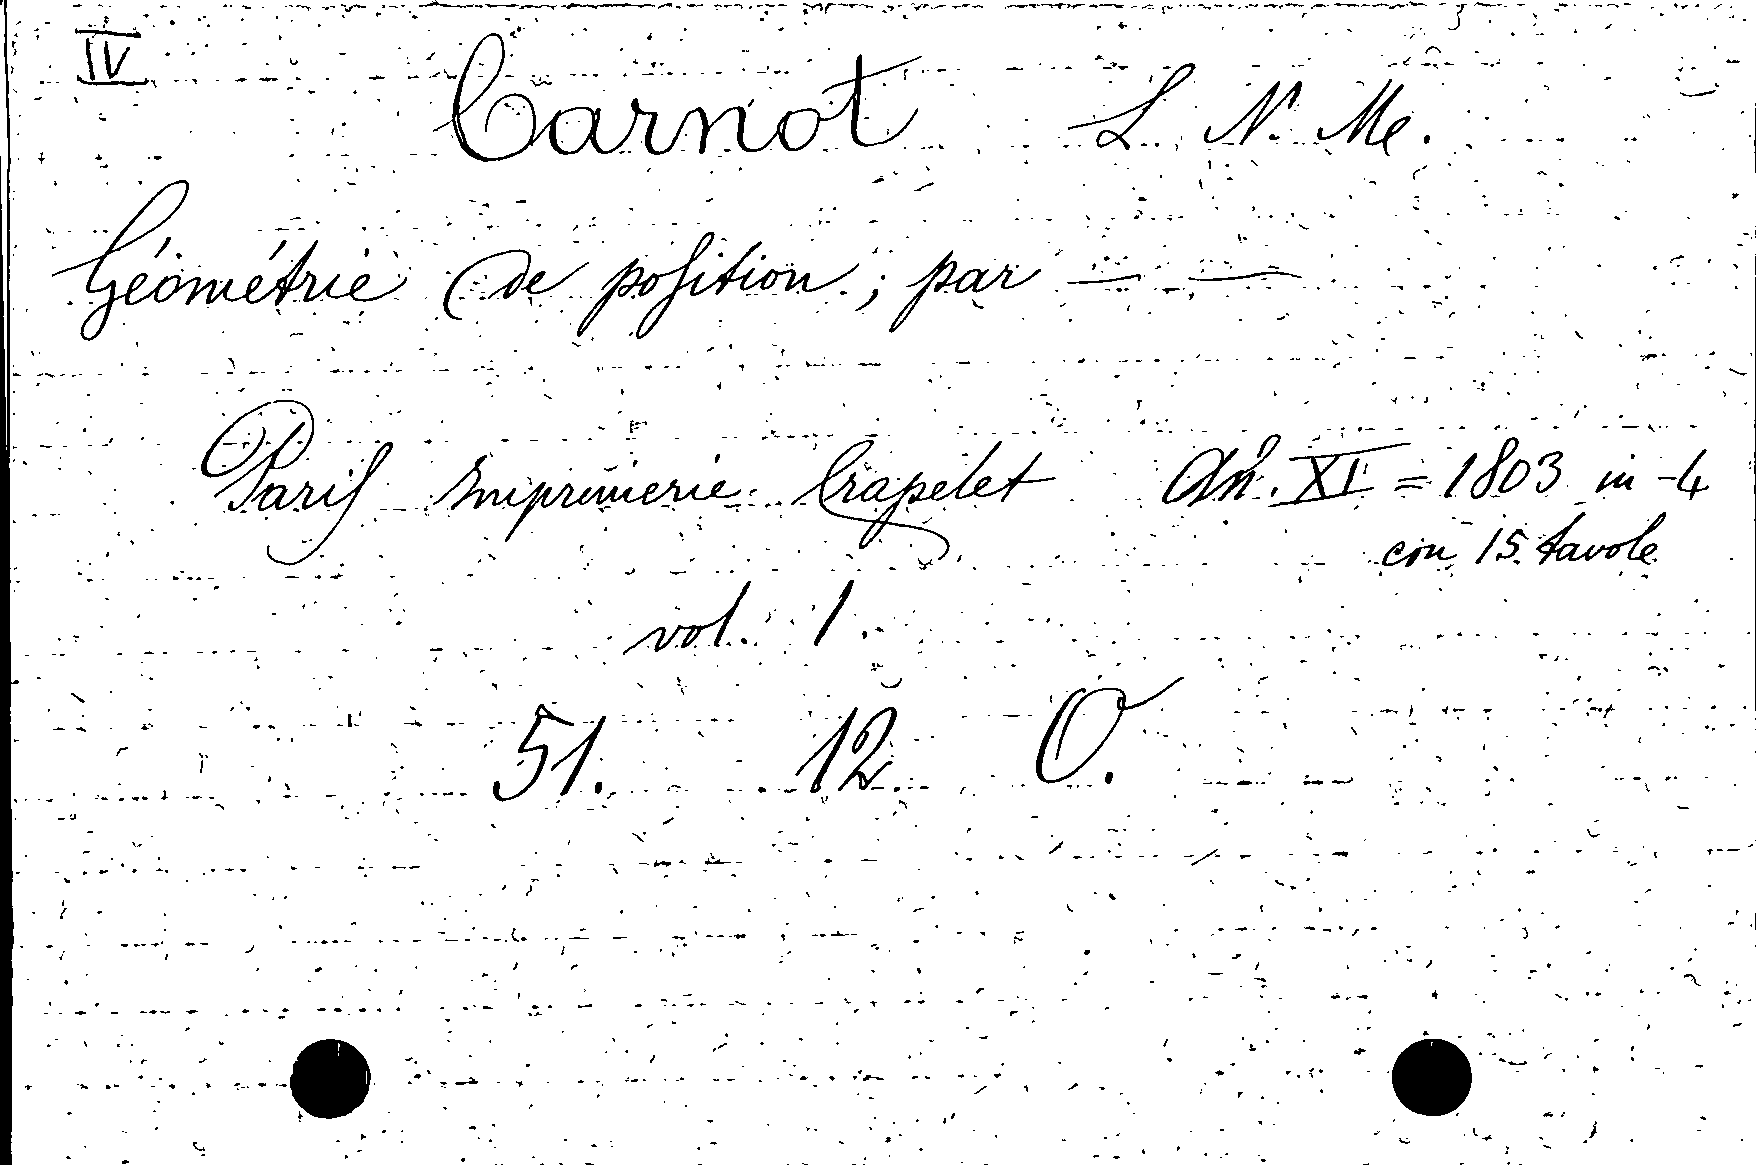 IV
Carnot L. N. Me.
Géométrie de position; par — —
Paris Imprimerie Crapelet An. XI = 1803 in-4
con 15 tavole
vol. 1.
51. 12. O.